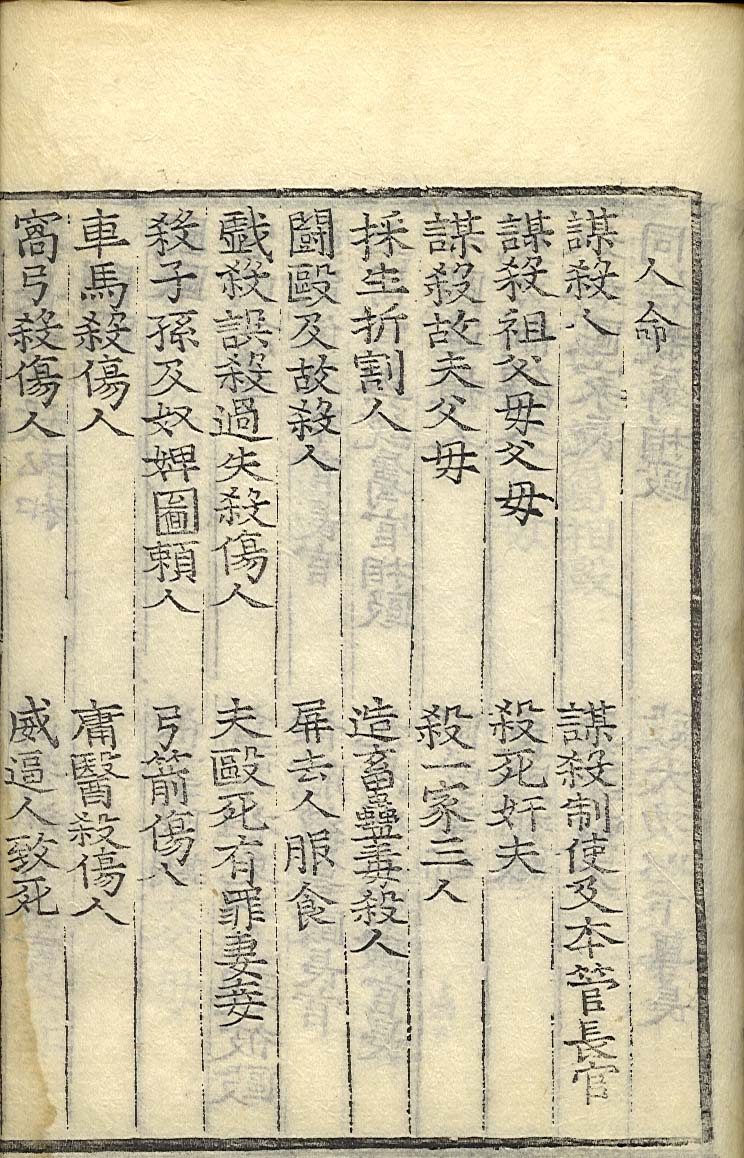 人命
謀殺人　謀殺制使及本管長官
謀殺祖父母父母　殺死奸夫
謀殺故夫父母　殺一家三人
採生折割人　造畜蠱毒殺人
鬪毆及故殺人　屏去人服食
戱殺誤殺過失殺傷人　夫毆死有罪妻妾
殺子孫及奴婢圖頼人　弓箭傷人
車馬殺傷人　庸醫殺傷人
窩弓殺傷人　威逼人致死